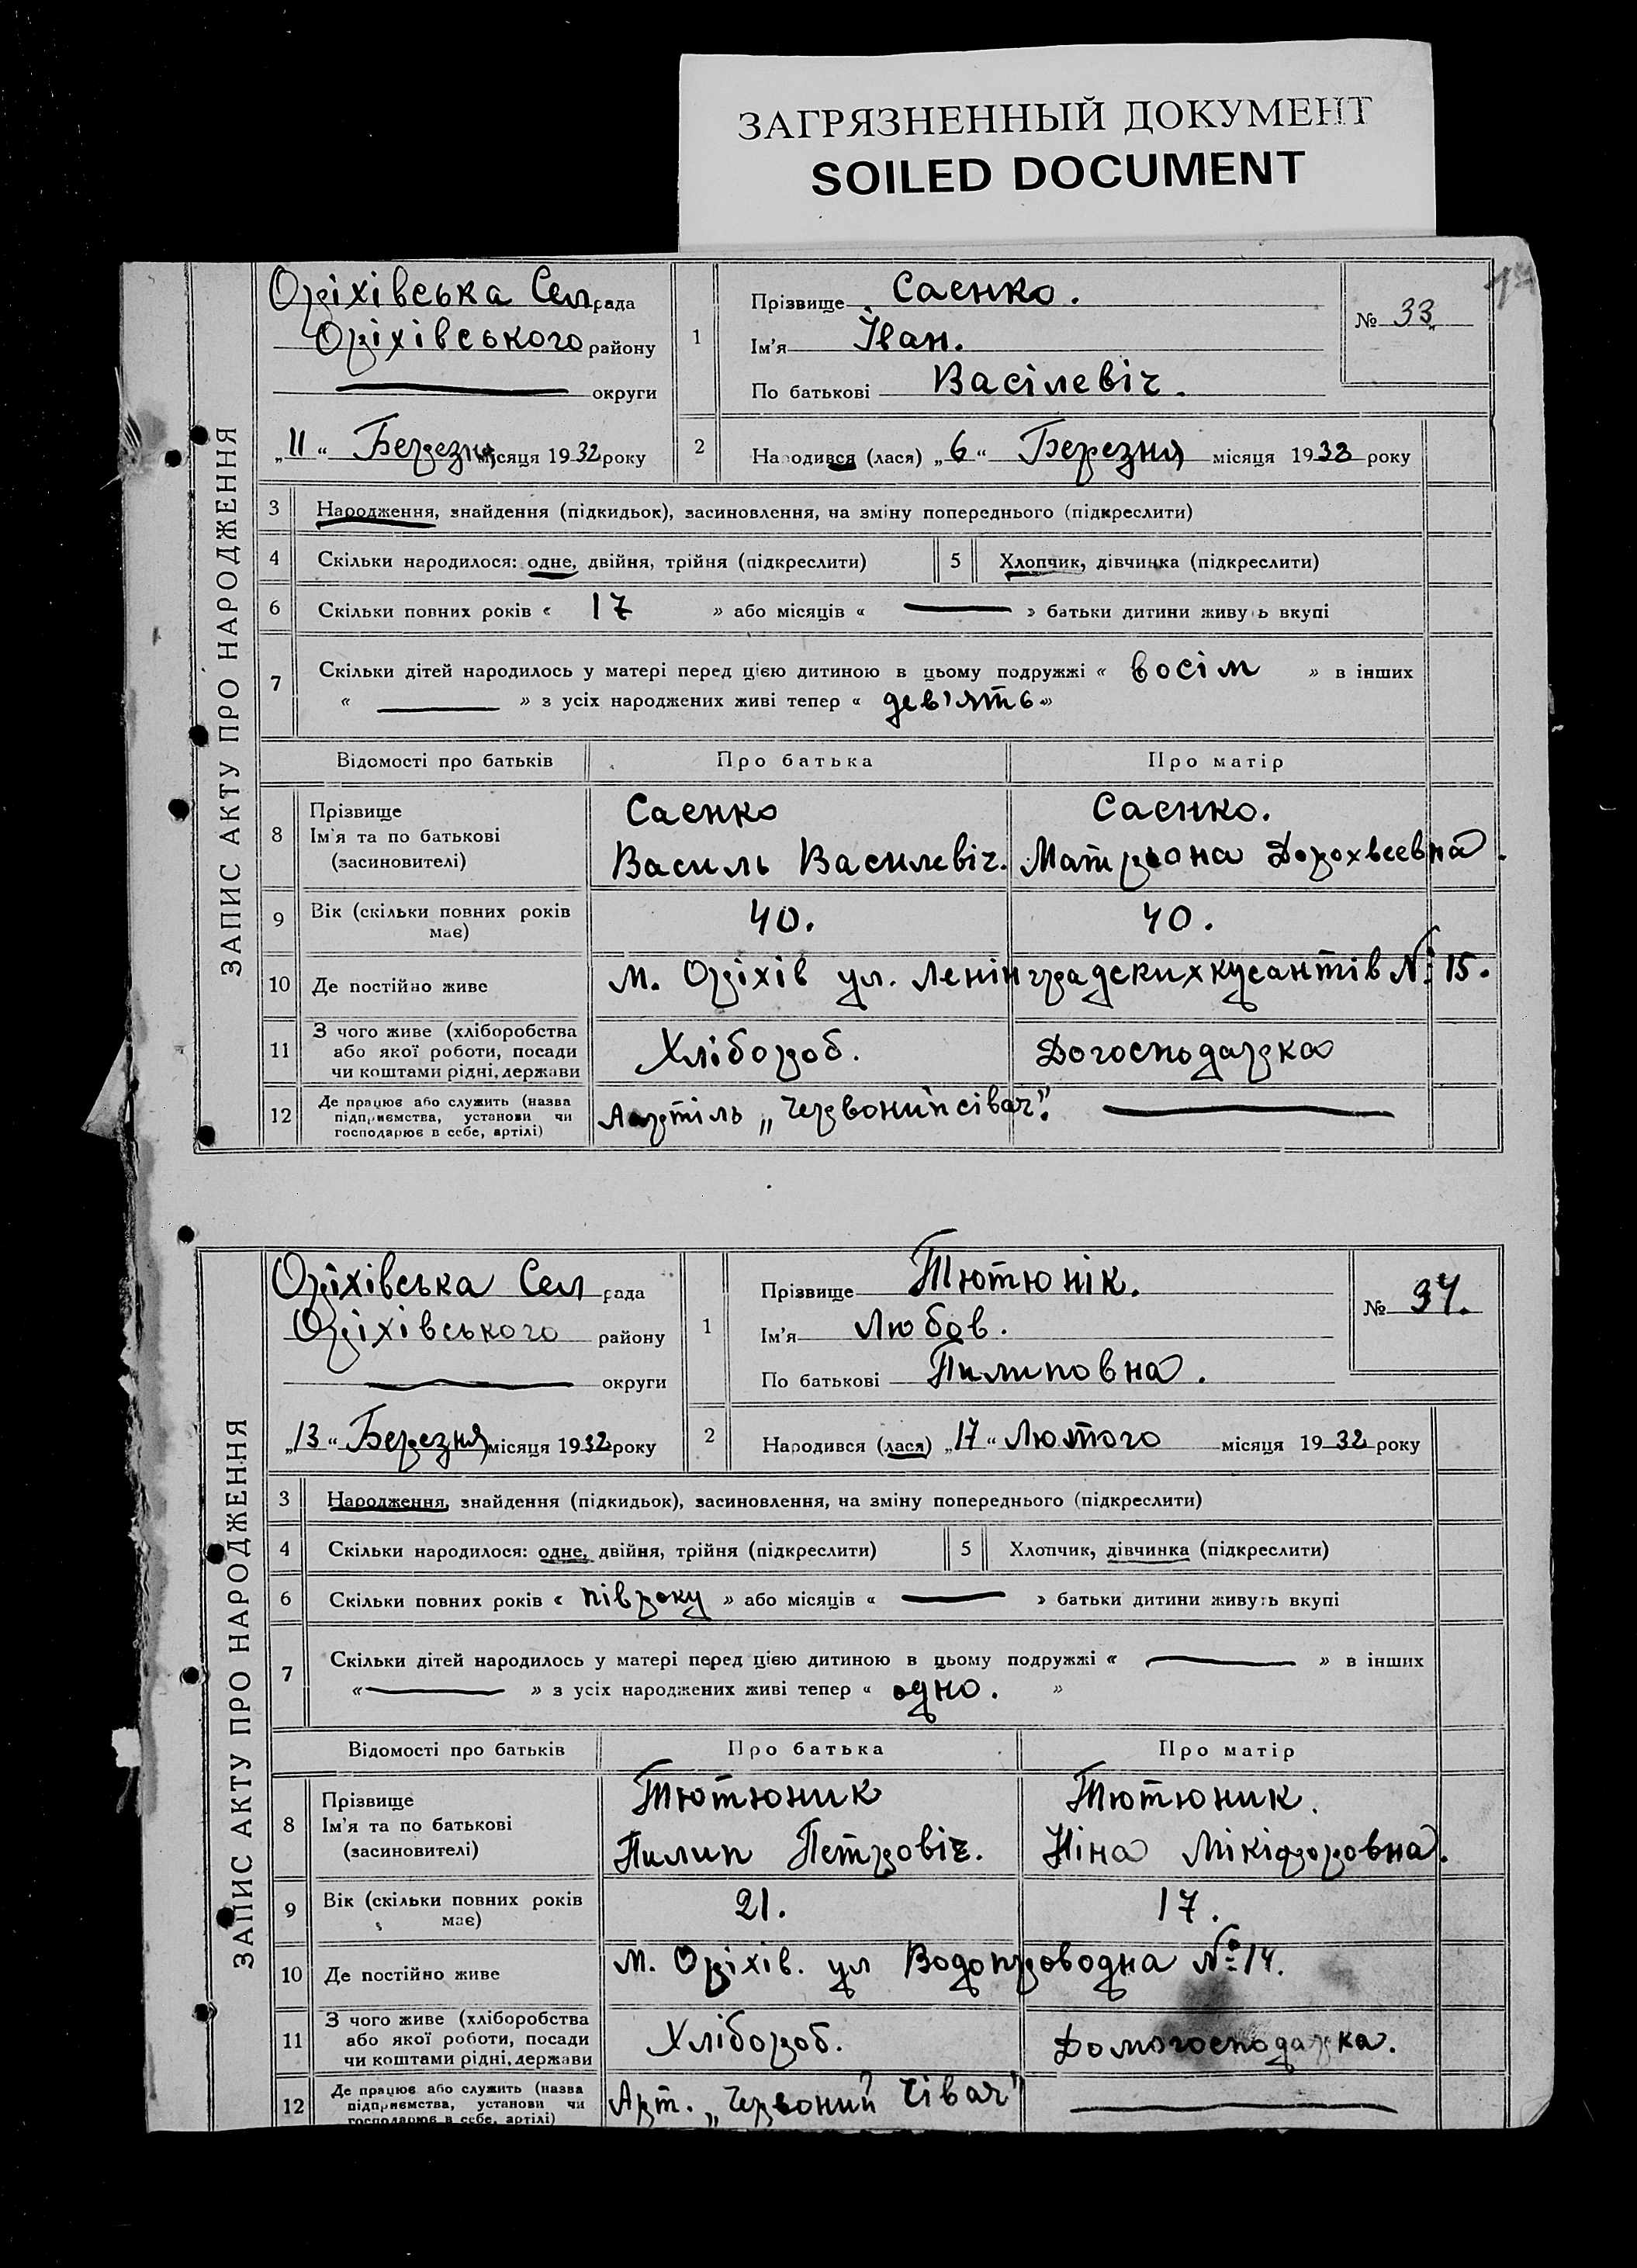 ЗАГРЯЗНЕННЫЙ ДОКУМЕНТ
SOILED DOCUMENT
ЗАПИС АКТУ ПРО НАРОДЖЕННЯ
Оріхівська Сел рада
Оріхівського району
округи
„11“ Березня місяця 1932 року
1
Прізвище Саєнко.
Ім'я Іван.
По батькові Васілевіч.
№ 33
2 Народився (лася) „6“ Березня місяця 1932 року
3 Народження, знайдення (підкидьок), засиновлення, на зміну попереднього (підкреслити)
4 Скільки народилося: одне, двійня, трійня (підкреслити) 5 Хлопчик, дівчинка (підкреслити)
6 Скільки повних років « 17 » або місяців « — » батьки дитини живуть вкупі
7 Скільки дітей народилось у матері перед цією дитиною в цьому подружжі « восім » в інших
« — » з усіх народжених живі тепер « дев'ять »
Відомості про батьків Про батька Про матір
8 Прізвище Саєнко Саєнко.
Ім'я та по батькові Василь Василевіч. Матрьона Дорохвеевна.
(засиновителі)
9 Вік (скільки повних років 40. 40.
має)
10 Де постійно живе М. Оріхів ул. Ленінградских кусантів № 15.
11 З чого живе (хліборобства Хлібороб. Догосподарка
або якої роботи, посади
чи коштами рідні, держави
12 Де працює або служить (назва Артіль „Червоний сівач". —
підприємства, установи чи
господарює в себе, артілі)
ЗАПИС АКТУ ПРО НАРОДЖЕННЯ
Оріхівська Сел рада
Оріхівського району
округи
„13“ Березня місяця 1932 року
1
Прізвище Тютюнік.
Ім'я Любов.
По батькові Пилиповна.
№ 34.
2 Народився (лася) „17“ Лютого місяця 1932 року
3 Народження, знайдення (підкидьок), засиновлення, на зміну попереднього (підкреслити)
4 Скільки народилося: одне, двійня, трійня (підкреслити) 5 Хлопчик, дівчинка (підкреслити)
6 Скільки повних років « півроку » або місяців « — » батьки дитини живуть вкупі
7 Скільки дітей народилось у матері перед цією дитиною в цьому подружжі « — » в інших
« — » з усіх народжених живі тепер « одно. »
Відомості про батьків Про батька Про матір
8 Прізвище Тютюник Тютюник.
Ім'я та по батькові Пилип Петровіч. Ніна Мікіфоровна.
(засиновителі)
9 Вік (скільки повних років 21. 17.
має)
10 Де постійно живе М. Оріхів. ул Водопроводна № 14.
11 З чого живе (хліборобства Хлібороб. Домогосподарка.
або якої роботи, посади
чи коштами рідні, держави
12 Де працює або служить (назва Арт. „Червоний Сівач" —
підприємства, установи чи
господарює в себе, артілі)